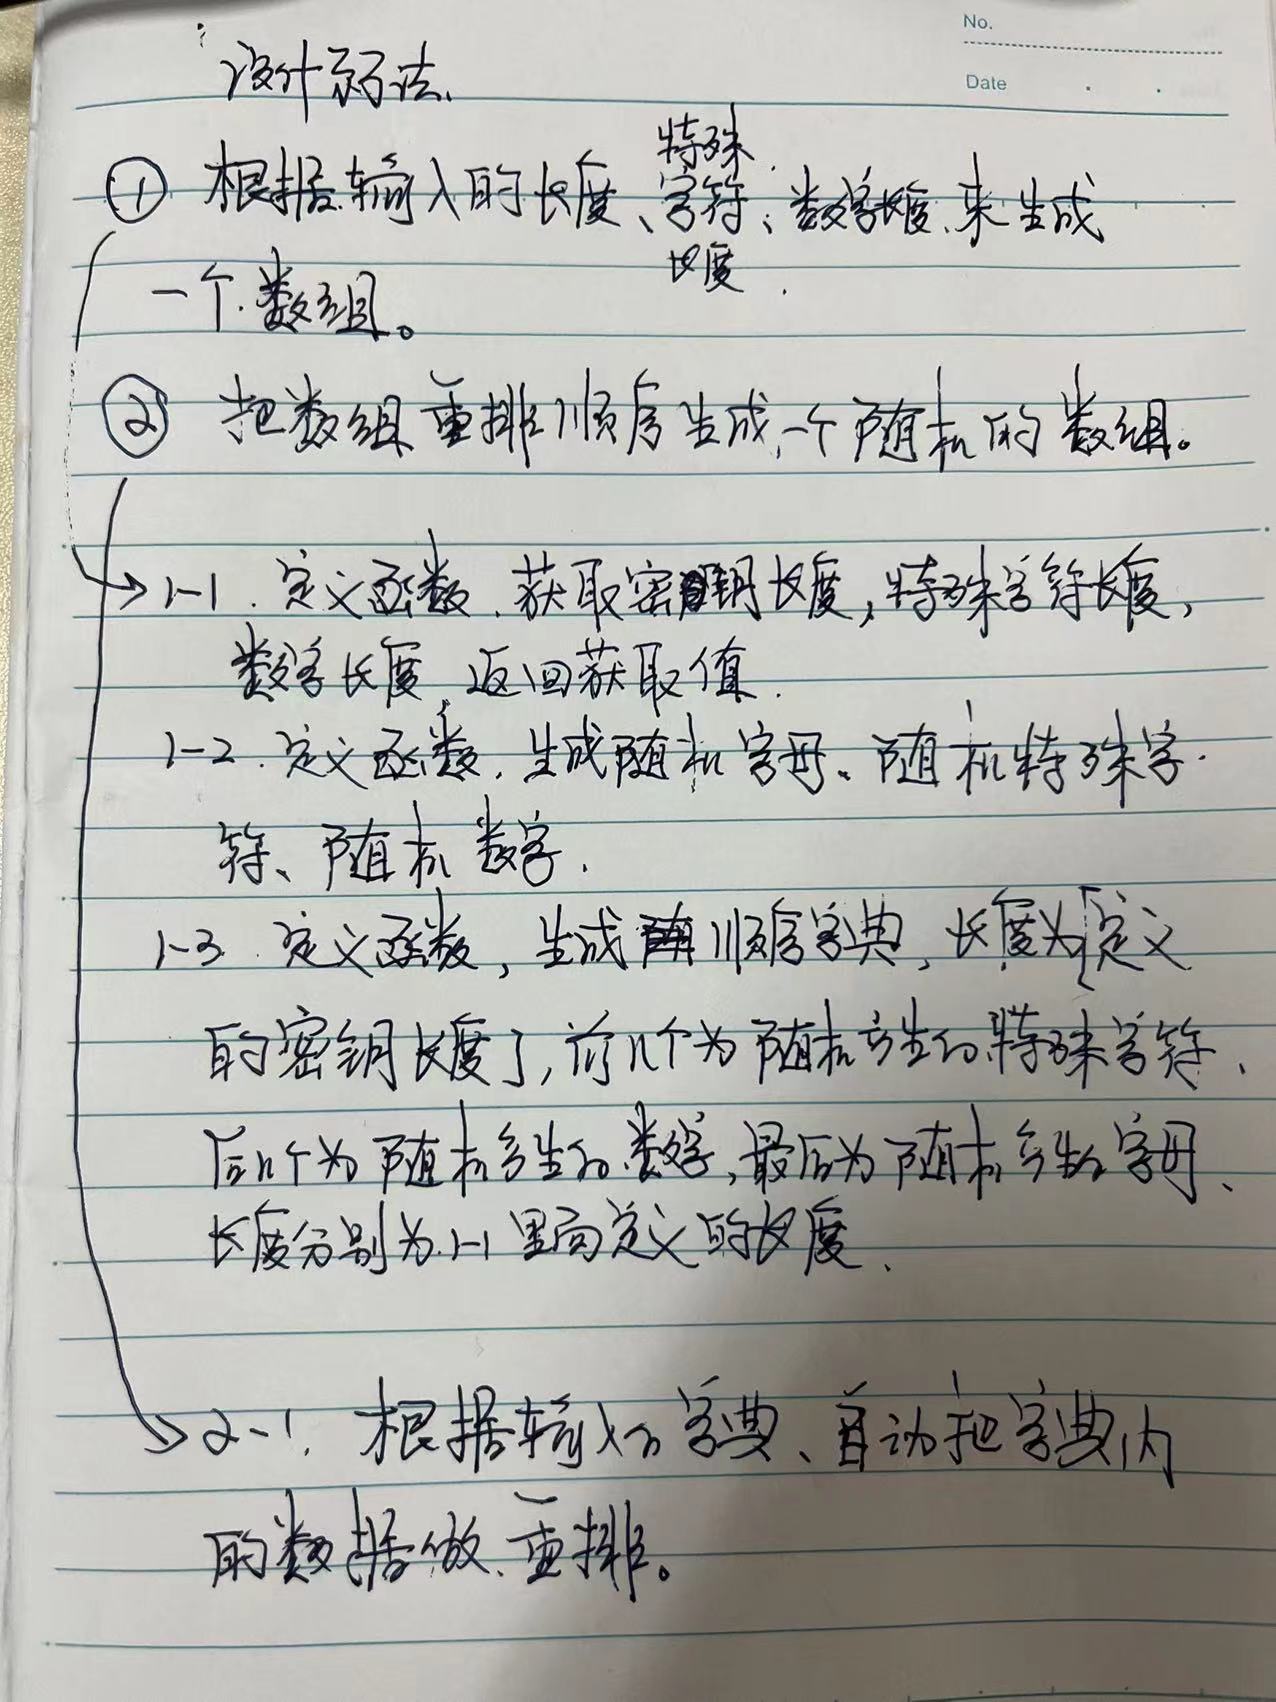 No.
Date
设计算法.
① 根据输入的长度、特殊字符长度、数字长度.来生成
一个数组。
② 把数组重排顺序生成一个随机的数组。
1-1. 定义函数. 获取密钥长度,特殊字符长度,
数字长度,返回获取值.
1-2. 定义函数. 生成随机字母、随机特殊字
符、随机数字.
1-3. 定义函数, 生成顺序字典, 长度为「定义
的密钥长度」,前几个为随机产生的特殊字符.
后几个为随机产生的数字,最后为随机产生的字母.
长度分别为.1-1里面定义的长度.
2-1. 根据输入的字典、自动把字典内
的数据做重排。